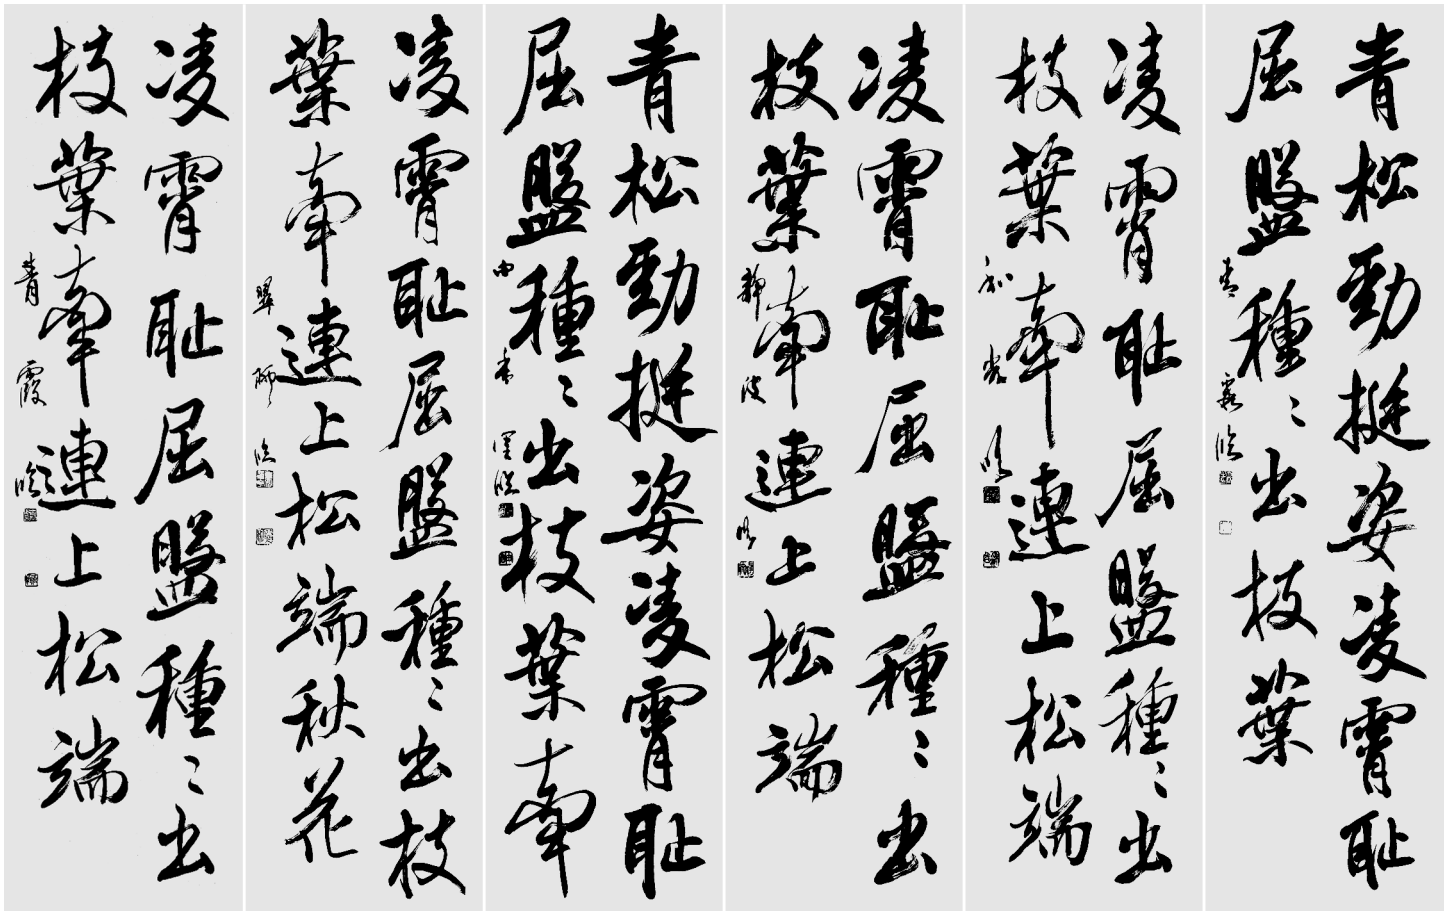 青松勁挺姿凌霄恥
屈盤種々出枝葉
臨
凌霄恥屈盤種々出
枝葉牽連上松端
臨
凌霄恥屈盤種々出
枝葉牽連上松端
静波臨
青松勁挺姿凌霄恥
屈盤種々出枝葉牽
由香里臨
凌霄恥屈盤種々出枝
葉牽連上松端秋花
翠臨
凌霄恥屈盤種々出
枝葉牽連上松端
青霞臨